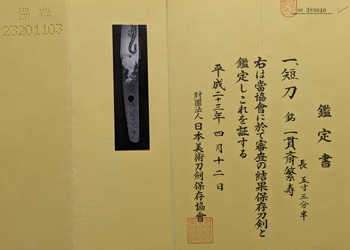 保存
23201103
№ 388040
鑑定書
一、短刀 銘 一貫斎繁寿
長 五寸三分半
右は當協會に於て審査の結果保存刀剣と
鑑定しこれを証する
平成二十三年四月十二日
財團法人 日本美術刀剣保存協會